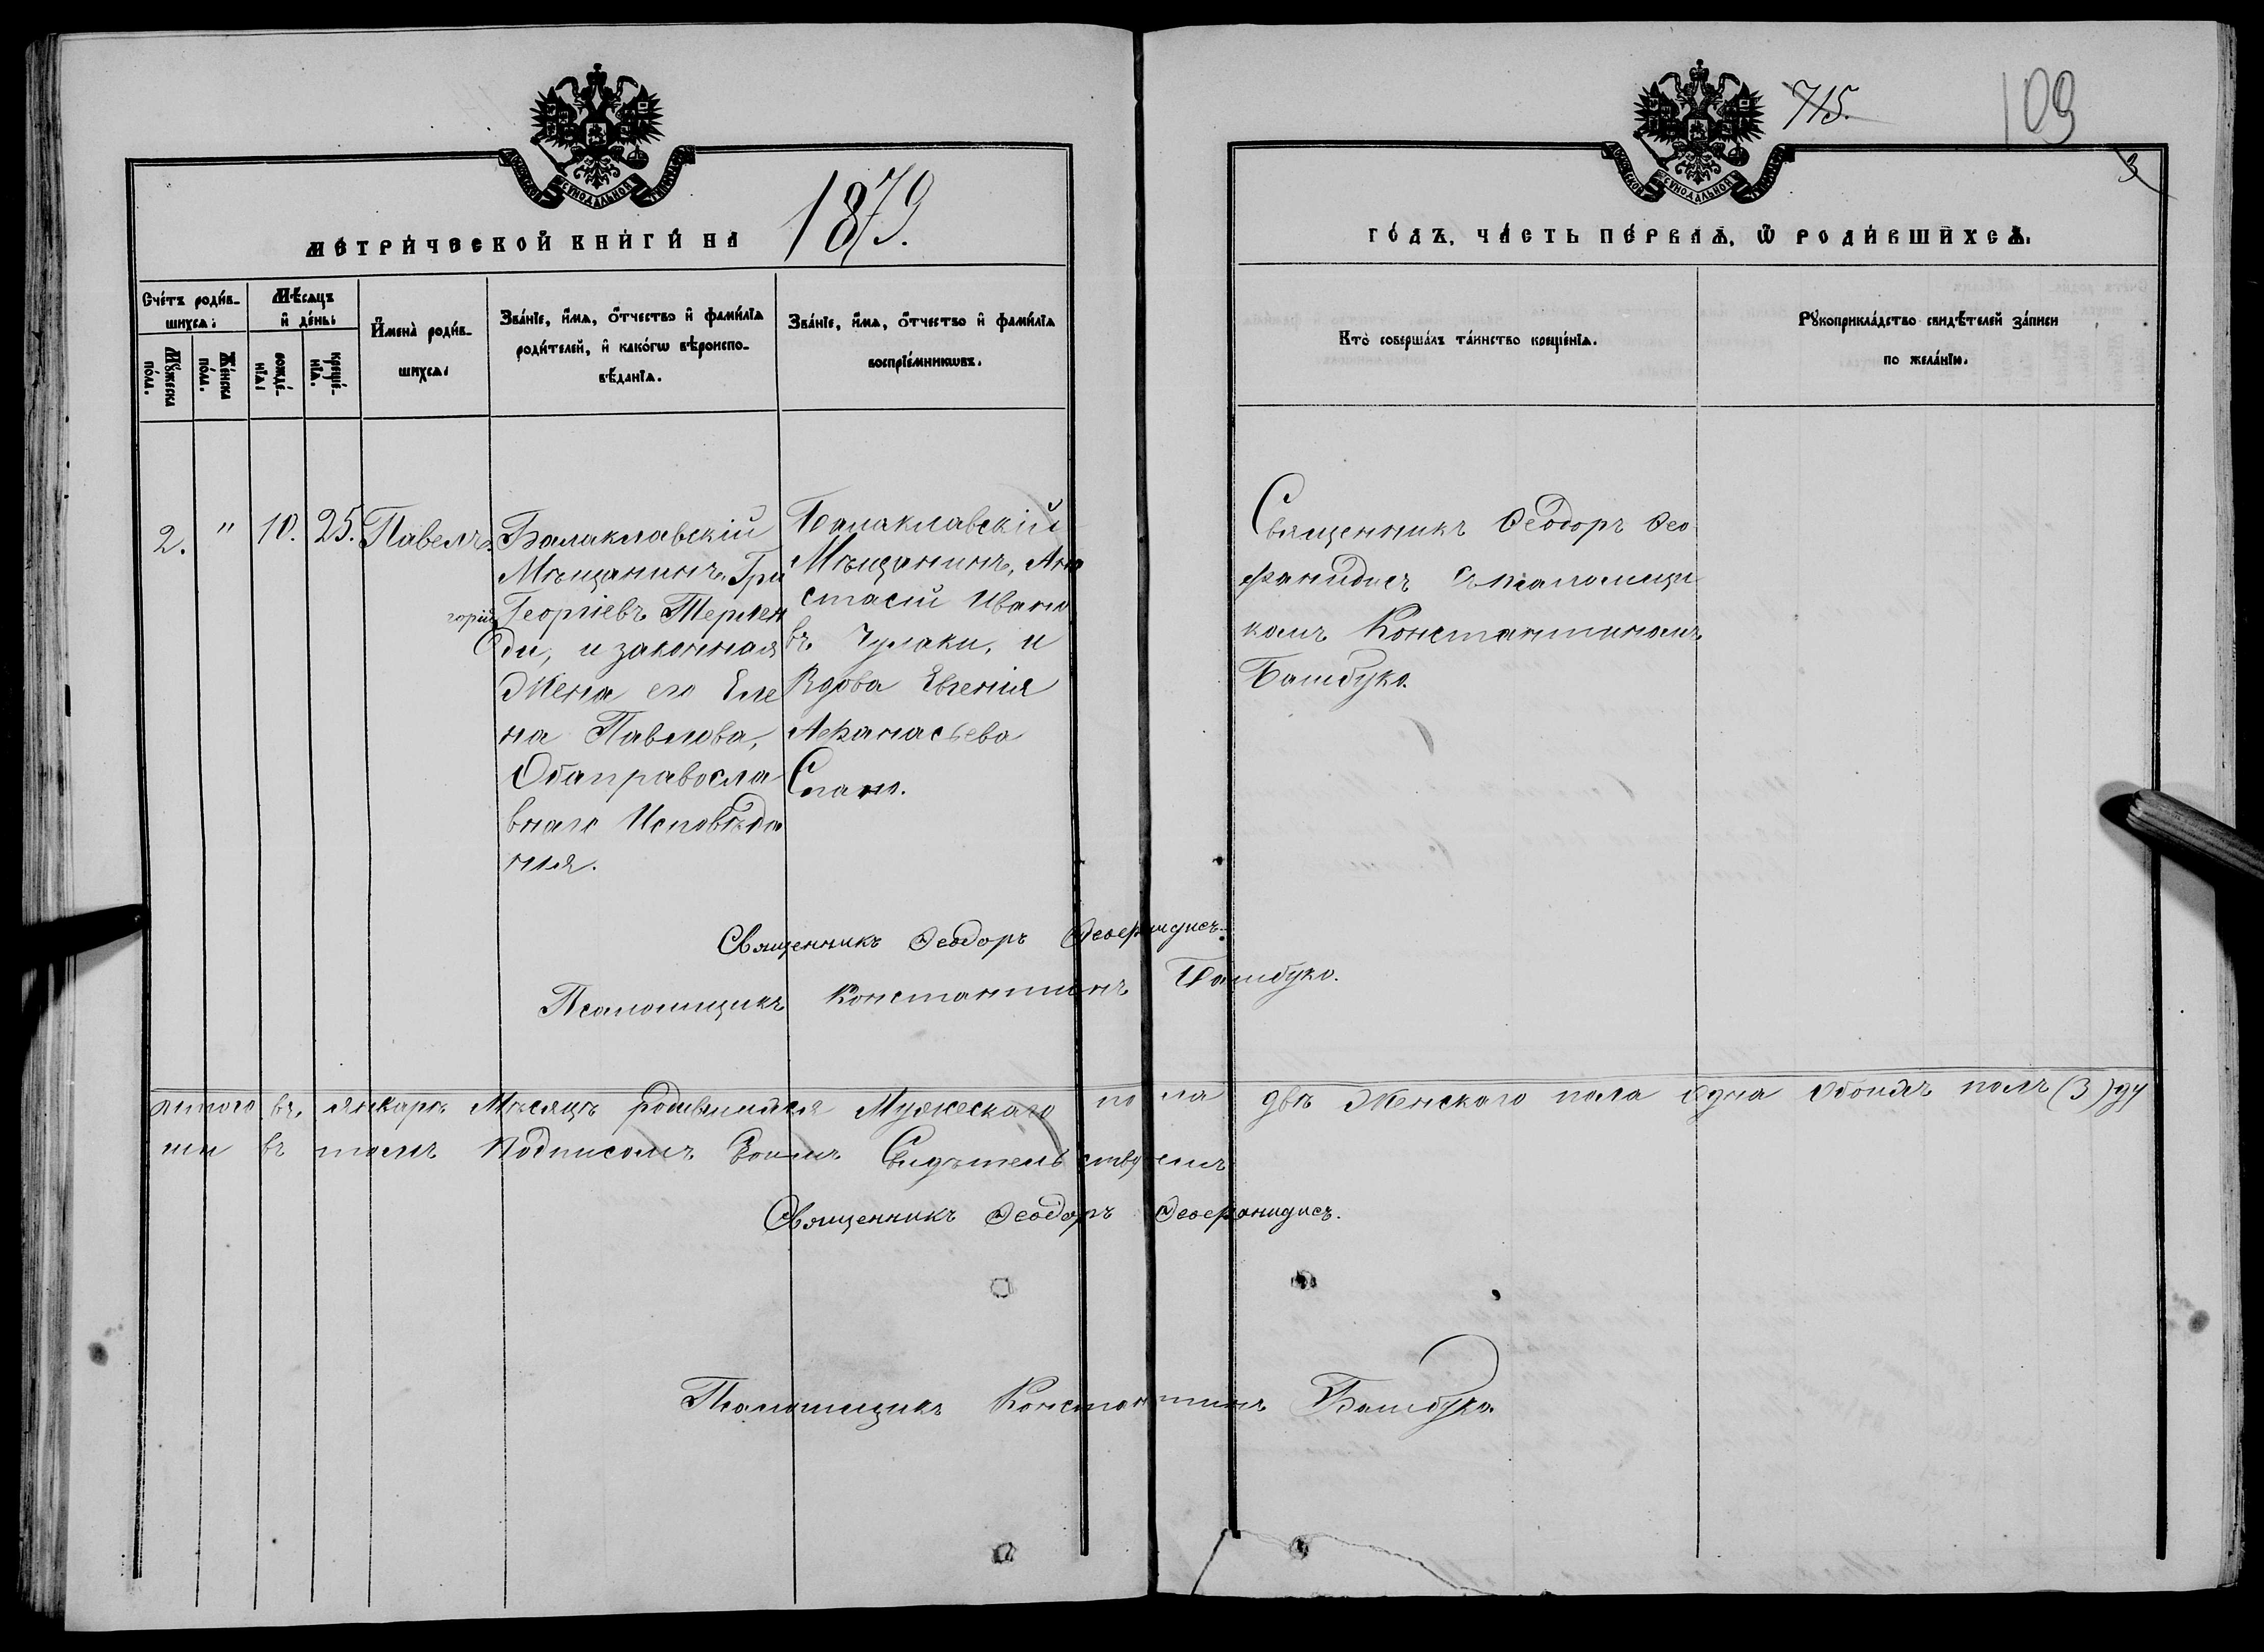 715.
109
3
МЕТРИ́ЧЕСКОЙ КНИ́ГИ НА 1879.
ГО́ДЪ, ЧА́СТЬ ПЕ́РВАѦ, Ѡ҆ РОДИ́ВШИХСѦ.
Сче́тъ роди́в-
шихсѧ:
Мѣ́сѧцъ
и҆ де́нь:
Мꙋ́жеска
по́ла.
Же́нска
по́ла.
рожде́-
нїѧ:
креще́-
нїѧ.
И҆мена̀ роди́в-
шихсѧ:
Зва́нїе, и҆́мѧ, ѻ҆́тчество и҆ фами́лїѧ
роди́телей, и҆ како́гѡ вѣроиспо-
вѣ́данїѧ.
Зва́нїе, и҆́мѧ, ѻ҆́тчество и҆ фами́лїѧ
воспрїе́мникѡвъ.
Кто̀ соверша́лъ та́инство креще́нїѧ.
Рꙋкоприкла́дство свидѣ́телей за́писи
по жела́нїю.
2. " 10. 25. Павелъ.
Балаклавскій
Мѣщанинъ, Гри
горій Георгіевъ Терлен
ди, и законная
Жена его Еле
на Павлова,
Оба православ
внаго Исповѣда
ния.
Балаклавскій
Мѣщанинъ, Ана
стасій Ивано
въ Чулаки, и
Вдова Евгения
Афанасьева
Спано.
Священникъ Ѳеодоръ Ѳео
фанидисъ съ псаломщи
комъ Константиномъ
Башбуко.
Священникъ Ѳеодоръ Ѳеофанидисъ.
Псаломщикъ Константинъ Башбуко.
Итого въ январѣ Мѣсяцѣ родившийся Мужескаго пола двѣ Женского пола одна Обоихъ полъ (3) ду
ши въ томъ Подписомъ Своимъ Свидѣтельствуемъ
Священникъ Ѳеодоръ Ѳеофанидисъ.
Псаломщикъ Константинъ Башбуко.